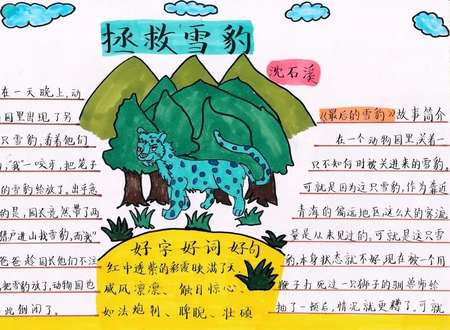 拯救雪豹
沈石溪
在一天晚上,动
园里出现了另
只雪豹,看着他们
,"我"一咬牙,把笼子
的雪豹给放了,出乎意
的是,园长竟然带了两
猎户进山找雪豹,而"我"
爸爸趁园长他们不注
把雪豹放了,动物园也
此倒闭了。
好字好词好句
红中透紫的彩霞映满了天
威风凛凛、触目惊心、
如法炮制、睥睨、壮硕
《最后的雪豹》故事简介
在一个动物园里,关着一
只不知何时被关进来的雪豹。
可就是因为这只雪豹,作为靠近
青海的偏远地区,这么大的客流
量是从未见过的,可就是这只雪
豹,本身状态就不好,现在被一个用
鞭子打死过一只狮子的驯兽师给
抽了一顿后,情况就更糟了,可就